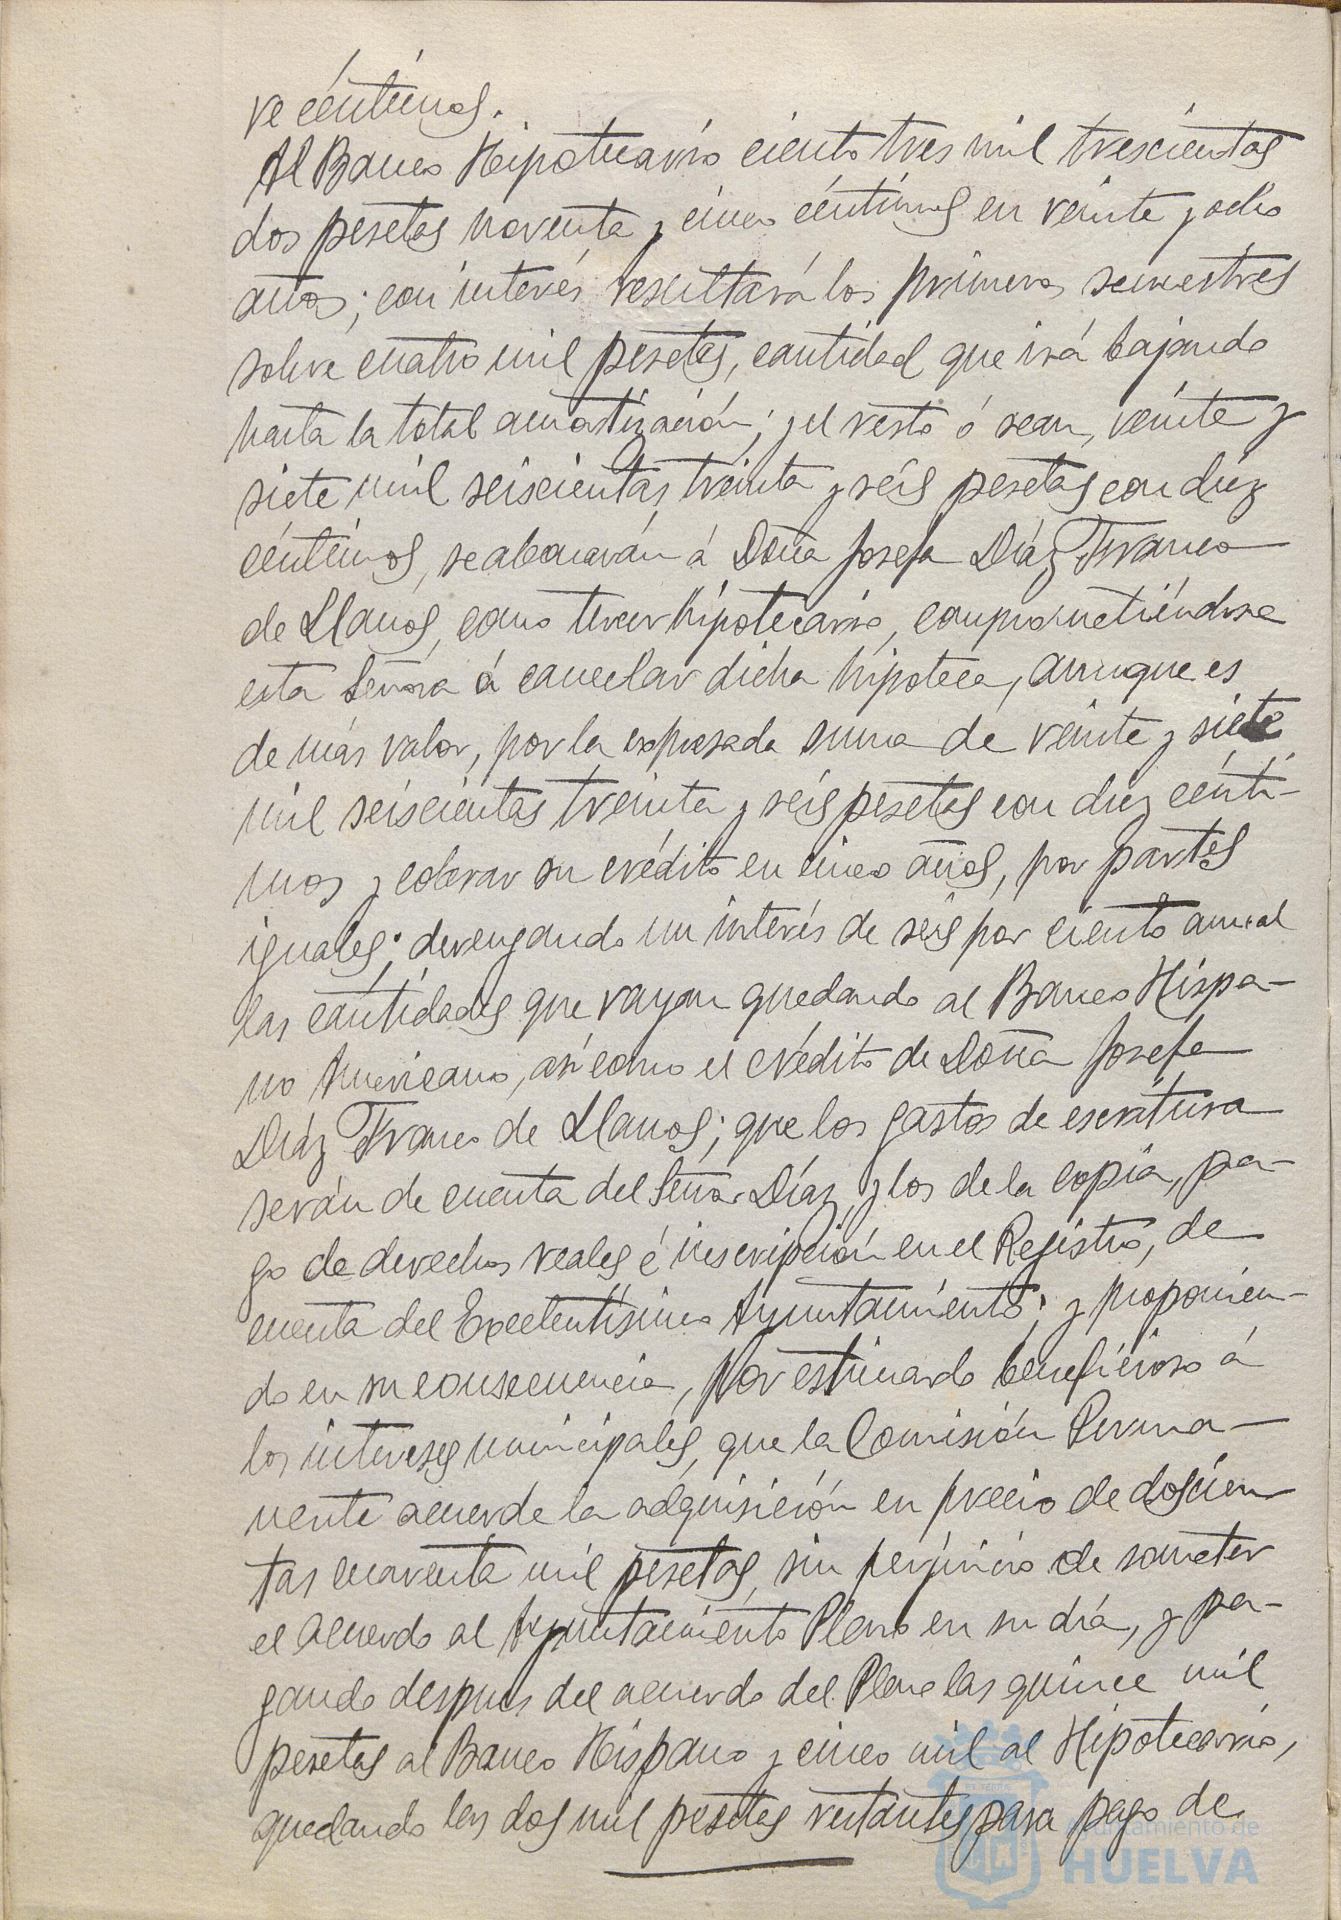 ve céntimos.
Al Banco Hipotecario ciento tres mil trescientas
dos pesetas noventa y cinco céntimos en veinte y ocho
años; con interés resultará los primeros semestres
sobre cuatro mil pesetas, cantidad que irá bajando
hasta la total amortización; y el resto ó sean, veinte y
siete mil seiscientas treinta y seis pesetas con diez
céntimos, se abonarán á Doña Josefa Díaz Franco
de Llanos, como tercer hipotecario, comprometiéndose
esta Señora á cancelar dicha hipoteca, aunque es
de más valor, por la expresada suma de veinte y siete
mil seiscientas treinta y seis pesetas con diez cénti-
mos y cobrar su crédito en cinco años, por partes
iguales; devengando un interés de seis por ciento anual
las cantidades que vayan quedando al Banco Hispa-
no Americano, así como el crédito de Doña Josefa
Díaz Franco de Llanos; que los gastos de escritura
serán de cuenta del Señor Díaz, y los de la copia, pa-
go de derechos reales é inscripción en el Registro, de
cuenta del Excelentísimo Ayuntamiento; y proponien-
do en su consecuencia, por estimarlo beneficioso á
los intereses municipales, que la Comisión Perma-
nente acuerde la adquisición en precio de doscien-
tas cuarenta mil pesetas, sin perjuicio de someter
el acuerdo al Ayuntamiento Pleno en su día, y pa-
gando después del acuerdo del Pleno las quince mil
pesetas al Banco Hispano y cinco mil al Hipotecario,
quedando las dos mil pesetas restantes para pago de
Ayuntamiento de
HUELVA